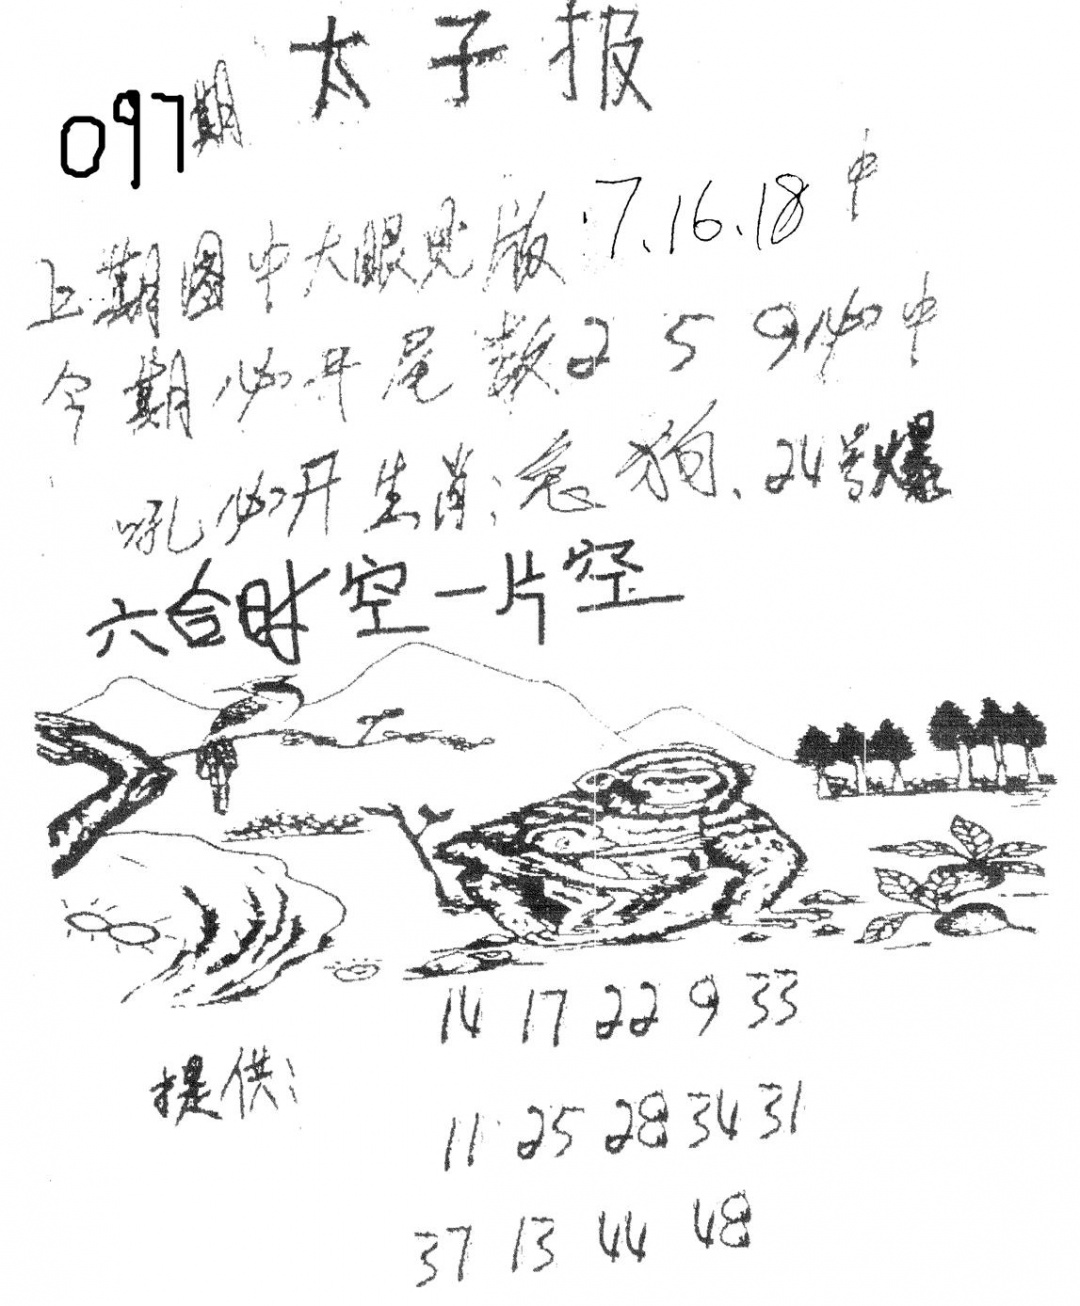 太子报
097期
上期图中大眼见版 7.16.18 中
今期必开尾数2 5 9必中
吼必开生肖:兔 狗、24号爆
六合时空一片空
14 17 22 9 33
提供:
11 25 28 34 31
37 13 44 48